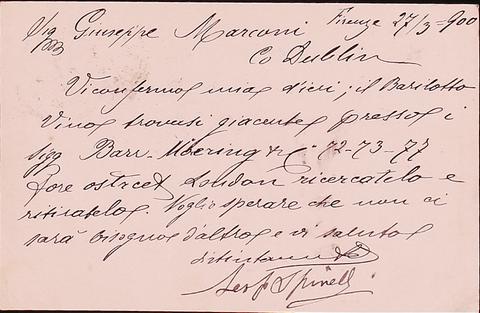 Sig Giuseppe Marconi Firenze 27/3=900
Co Dublin
Vi confermo mia d'ieri; il Barilotto
Vino trovasi giacente presso i
Sigg Barr-Moering & C. 72-73-77
Fore Street London ricercatelo e
ritiratelo. Voglio sperare che non ci
sarà bisogno d'altro e vi saluto
distintamente
Spinelli